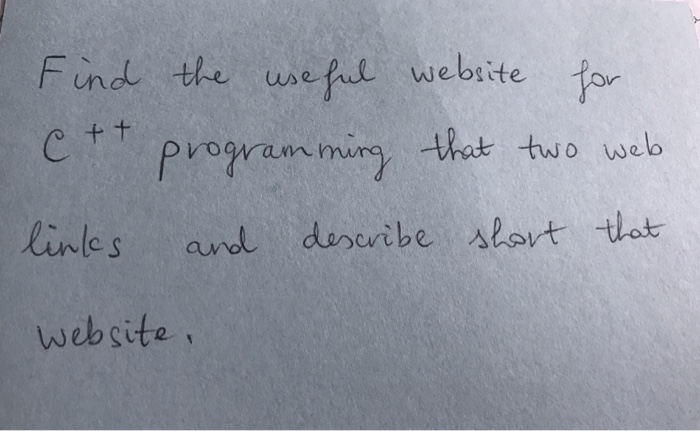 Find the useful website for
C++ programming that two web
links and describe short that
website.